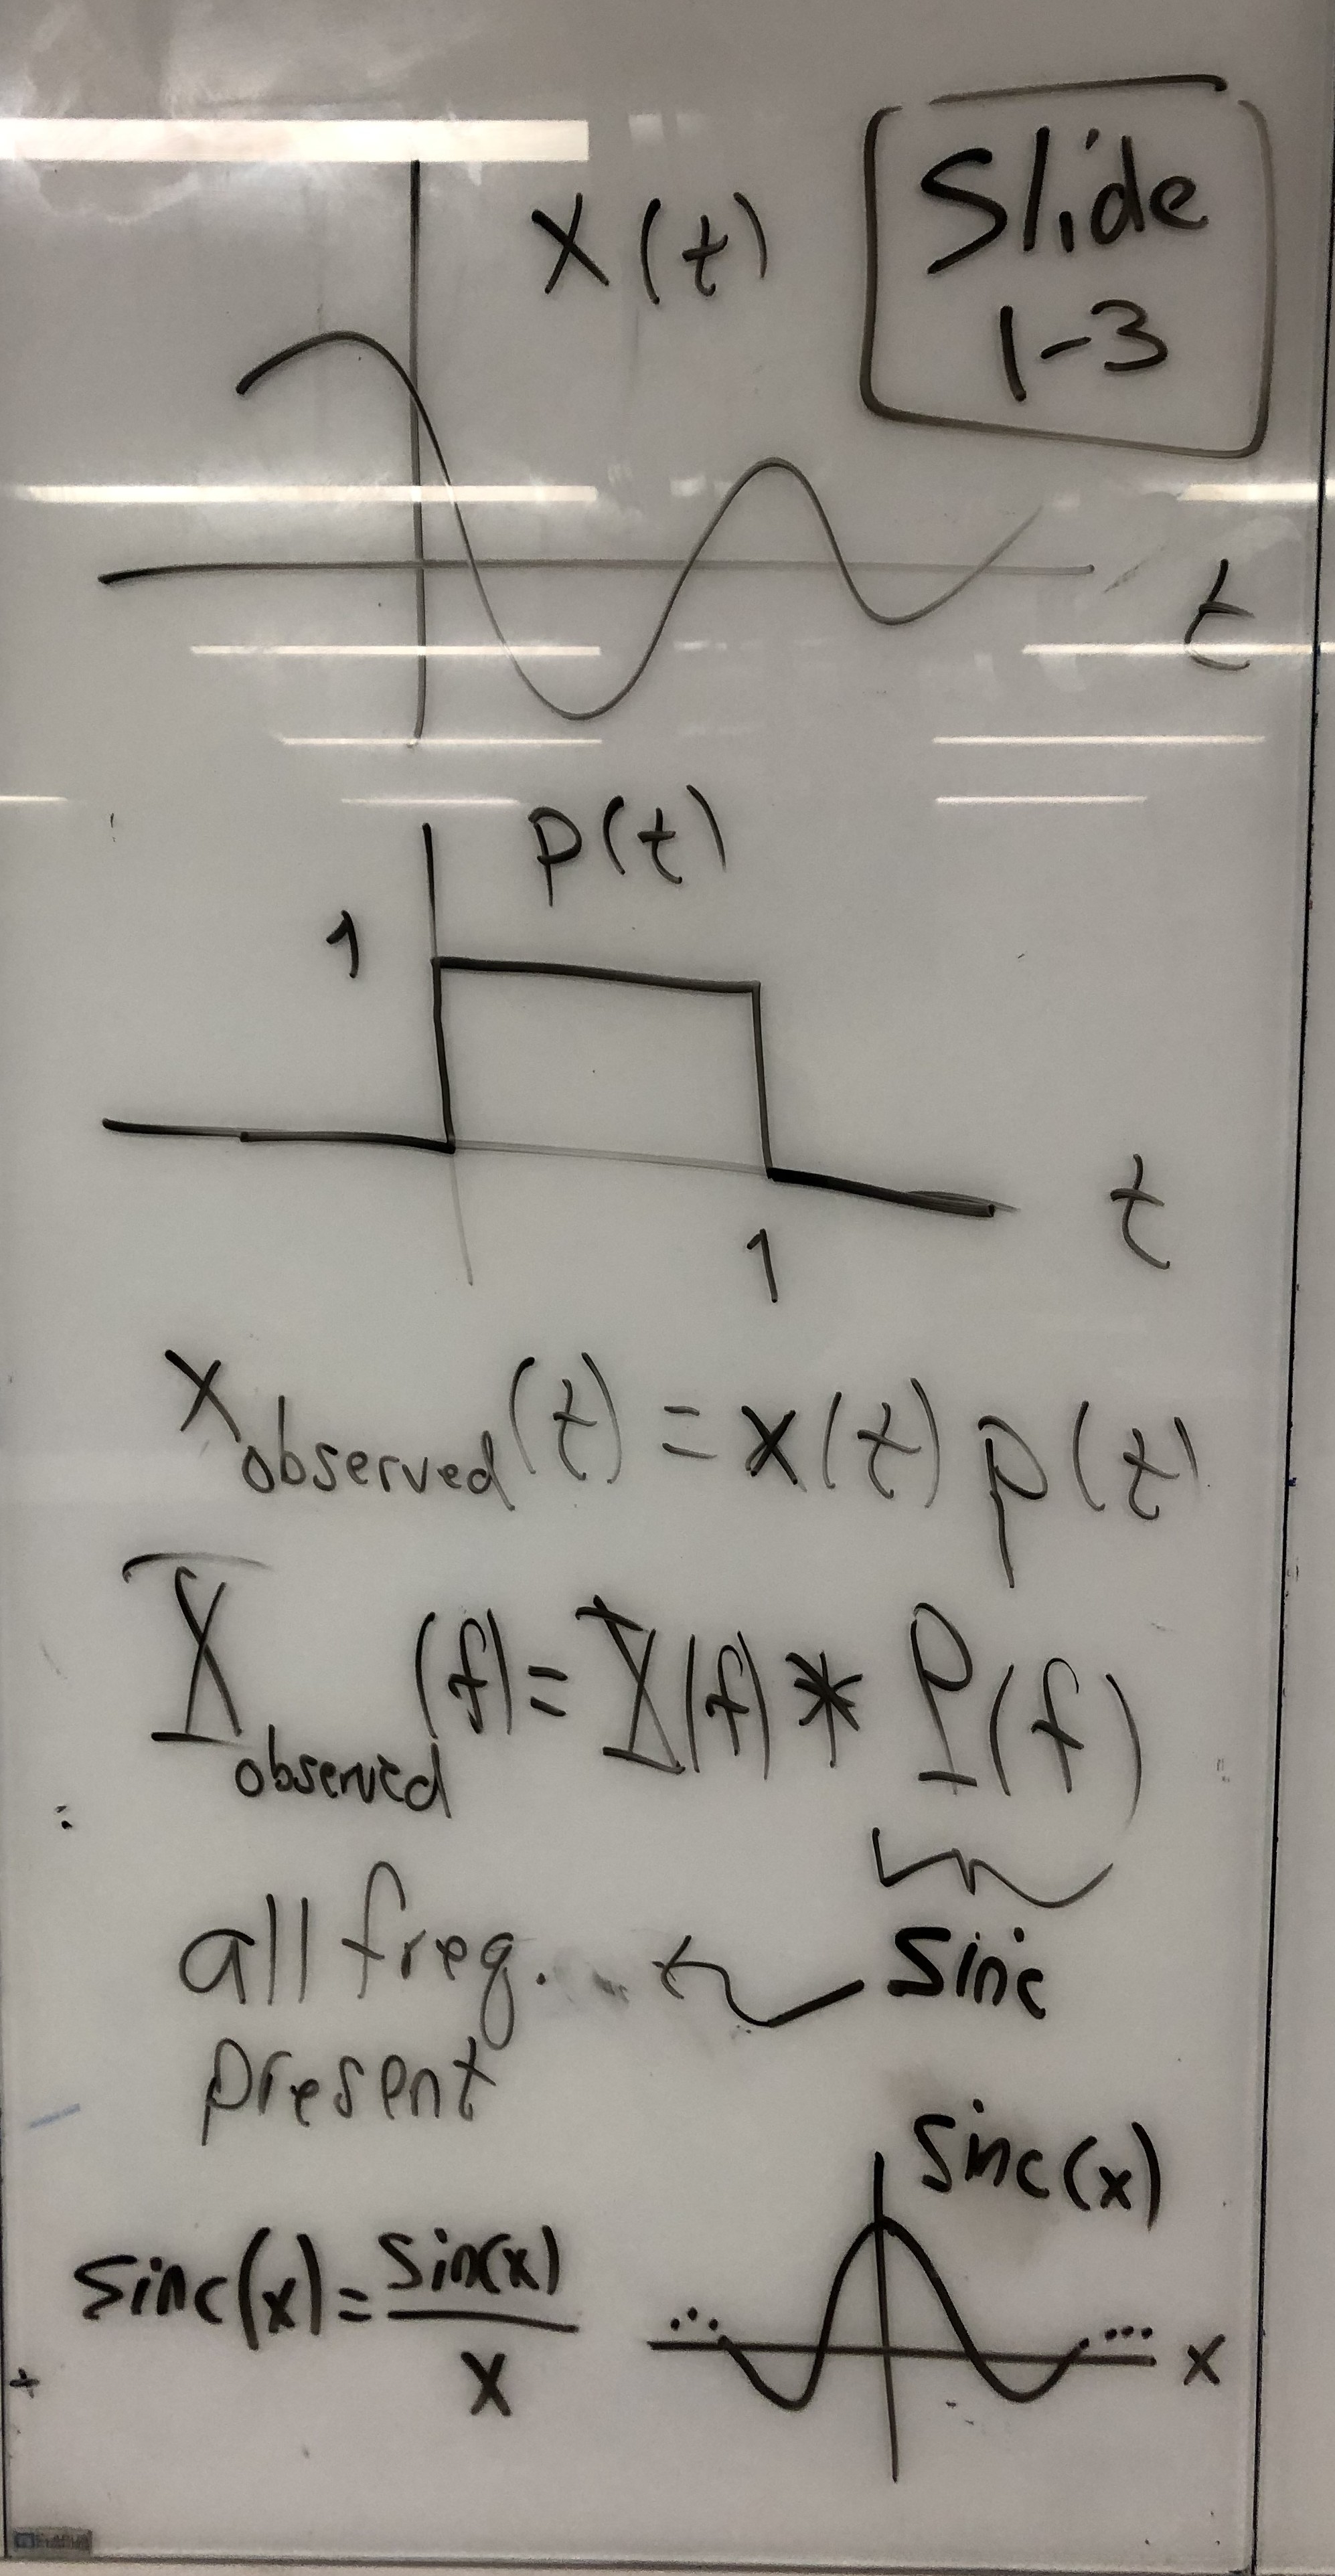 Slide
1-3
x(t)
t
p(t)
1
t
1
x observed (t) = x(t) p(t)
X observed (f) = X(f) * P(f)
all freq. ← sinc
present
sinc(x)
sinc(x) = sin(x)
x
... ... x